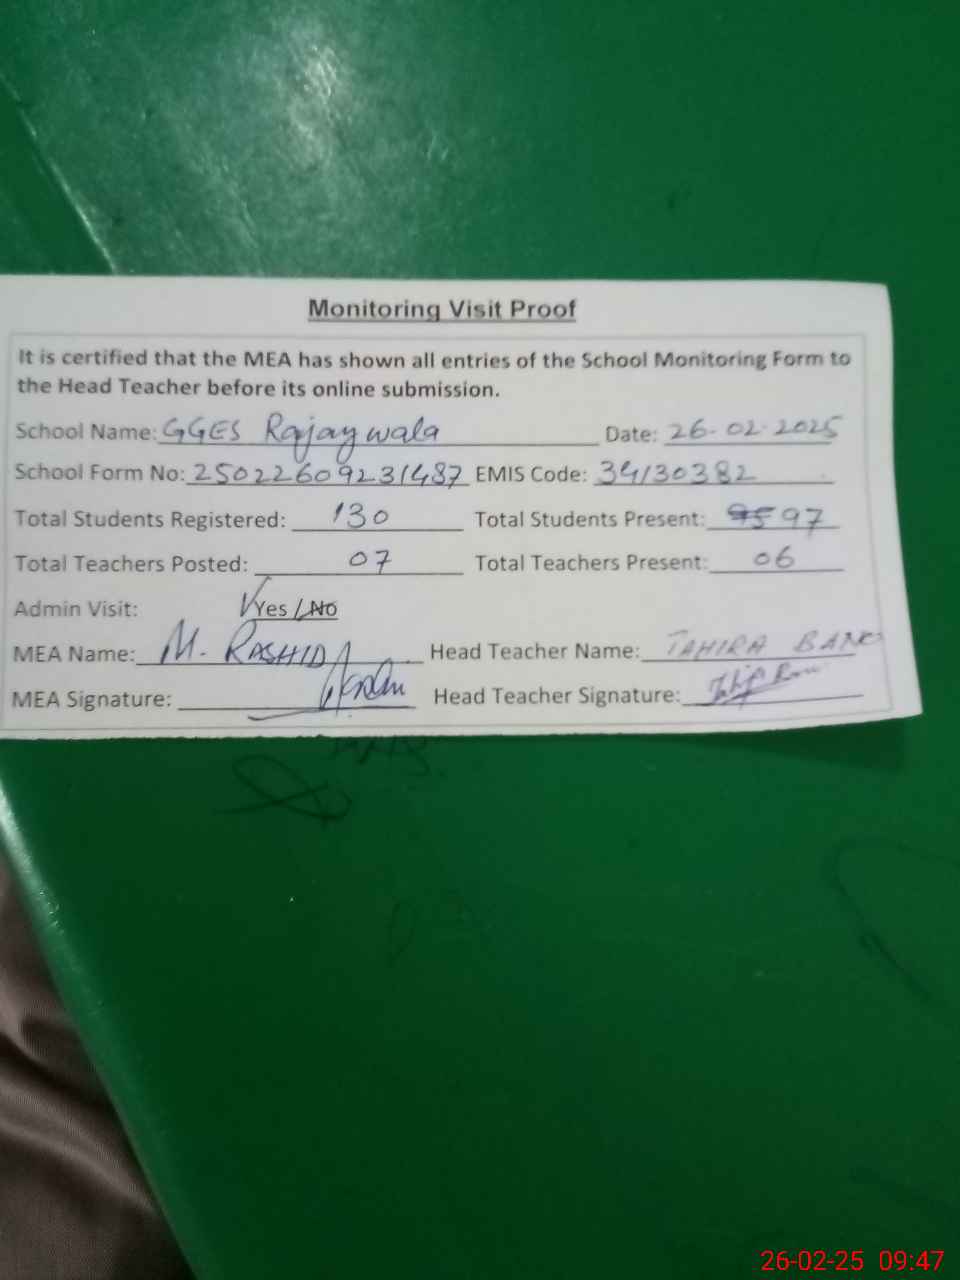 Monitoring Visit Proof
It is certified that the MEA has shown all entries of the School Monitoring Form to
the Head Teacher before its online submission.
School Name: GGES Rajaywala Date: 26-02-2025
School Form No: 25022609231487 EMIS Code: 34130382
Total Students Registered: 130 Total Students Present: 97
Total Teachers Posted: 07 Total Teachers Present: 06
Admin Visit: Yes / No
MEA Name: M. RASHID Head Teacher Name: TAHIRA BANO
MEA Signature: Head Teacher Signature:
26-02-25 09:47